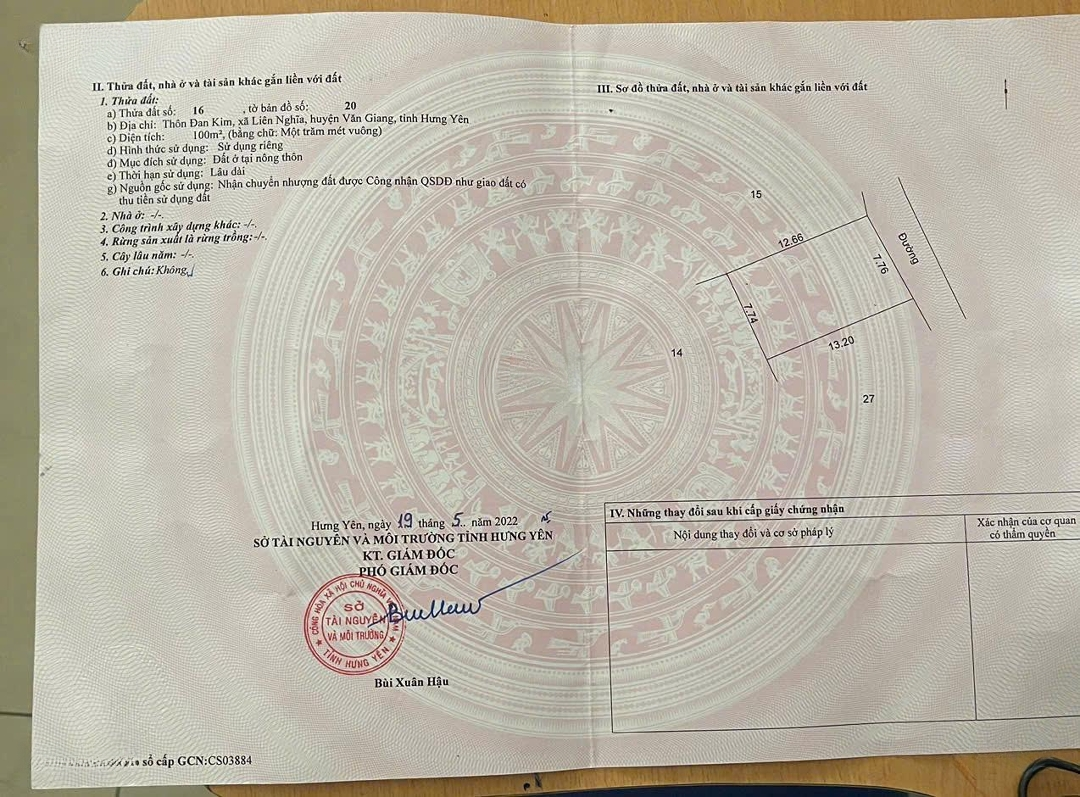 II. Thửa đất, nhà ở và tài sản khác gắn liền với đất
1. Thửa đất:
a) Thửa đất số: 16 , tờ bản đồ số: 20
b) Địa chỉ: Thôn Đan Kim, xã Liên Nghĩa, huyện Văn Giang, tỉnh Hưng Yên
c) Diện tích: 100m², (bằng chữ: Một trăm mét vuông)
d) Hình thức sử dụng: Sử dụng riêng
đ) Mục đích sử dụng: Đất ở tại nông thôn
e) Thời hạn sử dụng: Lâu dài
g) Nguồn gốc sử dụng: Nhận chuyển nhượng đất được Công nhận QSDĐ như giao đất có
thu tiền sử dụng đất
2. Nhà ở: -/-.
3. Công trình xây dựng khác: -/-.
4. Rừng sản xuất là rừng trồng:-/-.
5. Cây lâu năm: -/-.
6. Ghi chú: Không
Hưng Yên, ngày 19 tháng 5.. năm 2022
SỞ TÀI NGUYÊN VÀ MÔI TRƯỜNG TỈNH HƯNG YÊN
KT. GIÁM ĐỐC
PHÓ GIÁM ĐỐC
CỘNG HÒA XÃ HỘI CHỦ NGHĨA VIỆT NAM
SỞ
TÀI NGUYÊN
VÀ MÔI TRƯỜNG
TỈNH HƯNG YÊN
Bùi Xuân Hậu
số cấp GCN:CS03884
III. Sơ đồ thửa đất, nhà ở và tài sản khác gắn liền với đất
15
12.66
Đường
7.76
7.74
13.20
14
27
IV. Những thay đổi sau khi cấp giấy chứng nhận
Nội dung thay đổi và cơ sở pháp lý
Xác nhận của cơ quan
có thẩm quyền